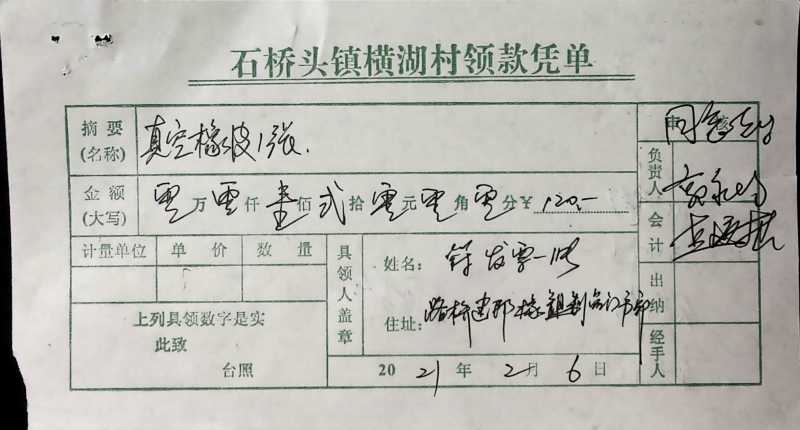 石桥头镇横湖村领款凭单
摘要(名称) 真空橡皮1张.
金额(大写) 零万零仟壹佰弍拾零元零角零分¥120.-
计量单位 单价 数量
上列具领数字是实
此致
台照
具领人盖章
姓名: 发票一张
住址: 路桥建邦橡塑制品门市部
2021年2月6日
审核 同意
负责人
会计
出纳
经手人